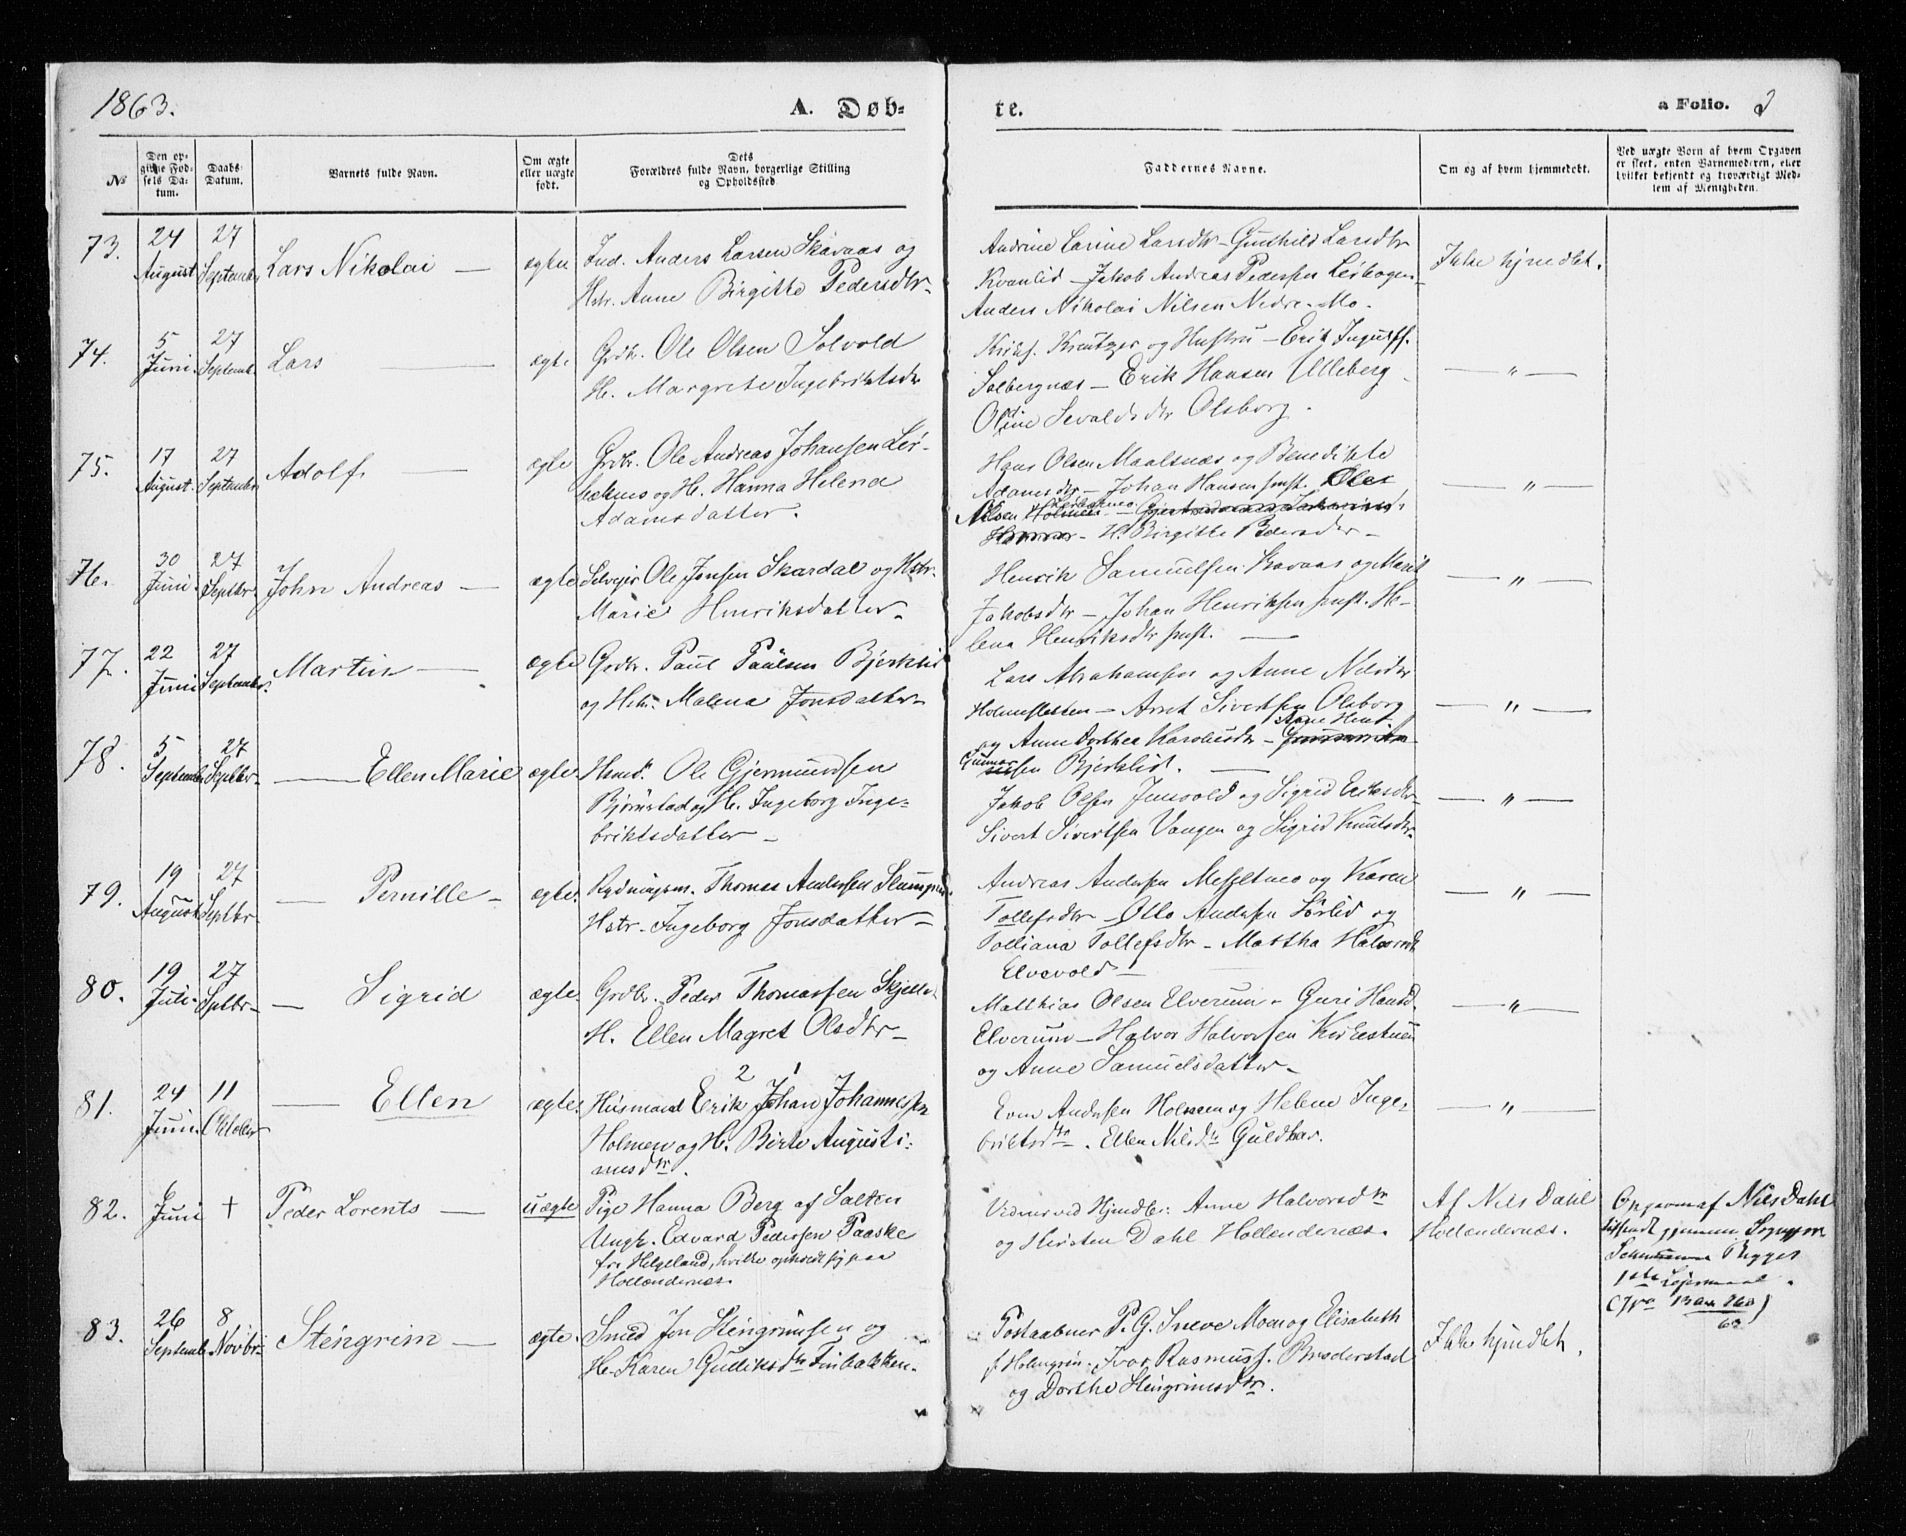 1863. A. Døb-
te. a Folio. 3
No
Den op-
givne Fød-
sels Da-
tum.
Daabs-
Datum.
Barnets fulde Navn.
Om ægte
eller uægte
født.
Dets
Forældres fulde Navn, borgerlige Stilling
og Opholdssted.
Faddernes Navne.
Om og af hvem hjemmedøbt.
Ved uægte Børn af hvem Opgaven
er skeet, enten Barnemoderen, eller
hvilket bekjendt og troværdigt Med-
lem af Menigheden.
73. 24 August 27 September Lars Nikolai — ægte Ind. Anders Larsen Skavaas og
Hstr. Anne Birgitte Pedersdtr.
Andrine Larine Larsdtr - Gunhild Larsdtr
Kvanlid - Jakob Andreas Pedersen Lerhogen
Anders Nikolai Nilsen Nedre-Mo.
Ikke hjmdbt.
74. 5 Juni 27 Septemb. Lars — ægte Grdbr. Ole Olsen Solvold
H. Margrete Ingebriktsdr
Kirks. Kreutzer og Hustru - Erik
Solbergnæs - Erik Hansen Ulleberg
Oldine Sevaldsdtr Olsborg.
— " —
75. 17 August. 27 September Adolf — ægte Grdbr. Ole Andreas Johansen Ler-
bæknes og H. Hanna Helena
Adamsdatter.
Hans Olsen Maalsnæs og Benedikte
Adamsdtr - Johan Hansen smst.
Nilsen Holmen
H. Birgitte Pedersdtr -
— " —
76. 30 Juni 27 Septbr. John Andreas — ægte Selveier Ole Jonsen Skardal og Hstr.
Marie Henriksdatter -
Henrik Samuelsen Kavaas og Marit
Jakobsdtr - Johan Henriksen smst. He-
lena Henriksdtr smst. —
— " —
77. 22 Juni 27 September Martin — ægte Grdbr. Paul Paulsen Bjerklid
og Hstr. Malena Jonsdatter -
Lars Abrahamsen og Anne Nilsdtr
Holmesletten - Arnt Sivertsen Olsborg
og Anne Dorthea Karolusdtr -
Bjerklid. —
— " —
78. 5 September 27 Septbr. — Ellen Marie ægte. Hsmd. Ole Gjermundsen
Bjørnstad og H. Ingeborg Inge-
briktsdatter -
Jakob Olsen Jensvold og Sigrid Eriksdtr
Sivert Sivertsen Vangen og Sigrid Knutsdtr.
— " —
79. 19 August 27 Septbr. — Pernille - ægte. Rydningsm. Thomas Andersen
Hstr. Ingeborg Jonsdatter -
Andreas Andersen Messeltmo og Karen
Tollefsdtr - Otto Andersen Sørlid og
Tolliana Tollefsdtr - Martha Halvorsdt
Elvevold -
— " —
80. 19 Juli 27 Sptbr. — Sigrid ægte. Grdbr. Peder Thomassen
H. Ellen Magret Olsdtr -
Matthias Olsen Elverum - Guri Hansd.
Elverum - Halvor Halvorsen Kirkestuen
og Anne Samuelsdatter -
— " —
81. 24 Juni 11 Oktober — Ellen ægte. Husmand Erik 2 Johan 1 Johannessen
Holmen og H. Birte August-
nusdtr.
Even Andersen Holmen og Helene Inge-
briktsdtr. Ellen Nilsdtr Guldhav.
— " —
82. 6 Juni + Peder Lorents — uægte Pige Hanna Berg af Salten
Ungk. Edvard Pedersen Paaske
fra Helgeland, hvilke opholdt sig paa
Hollændernæs.
Vidner ved Hjmdbr: Anne Halvorsdtr
og Kirsten Dahl Hollændernæs.
Af Nils Dahl
Hollændernæs.
Opgaven af Nils Dahl
tilsendt gjennem Sognepr.
83. 26 Septemb. 8 Novbr. Stengrim — ægte. Smed Jon Stengrimsen og
H. Karen Gulliksdtr Finbakken.
Postaabner P. G. Sneve Moen og Elisabeth
f. Holmgren. Ivar Rasmuss. Broderstad
og Dorthe Stengrimsdtr.
Ikke hjmdbt.